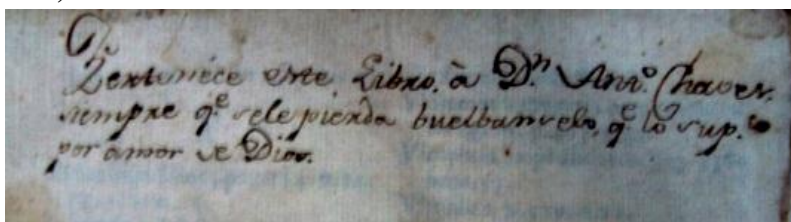 Pertenéce este Libro, à D.n Ant.o Chaves.
siempre q.e sele pierda buelbanselo, q.e lo sup.co
por amor de Dios.